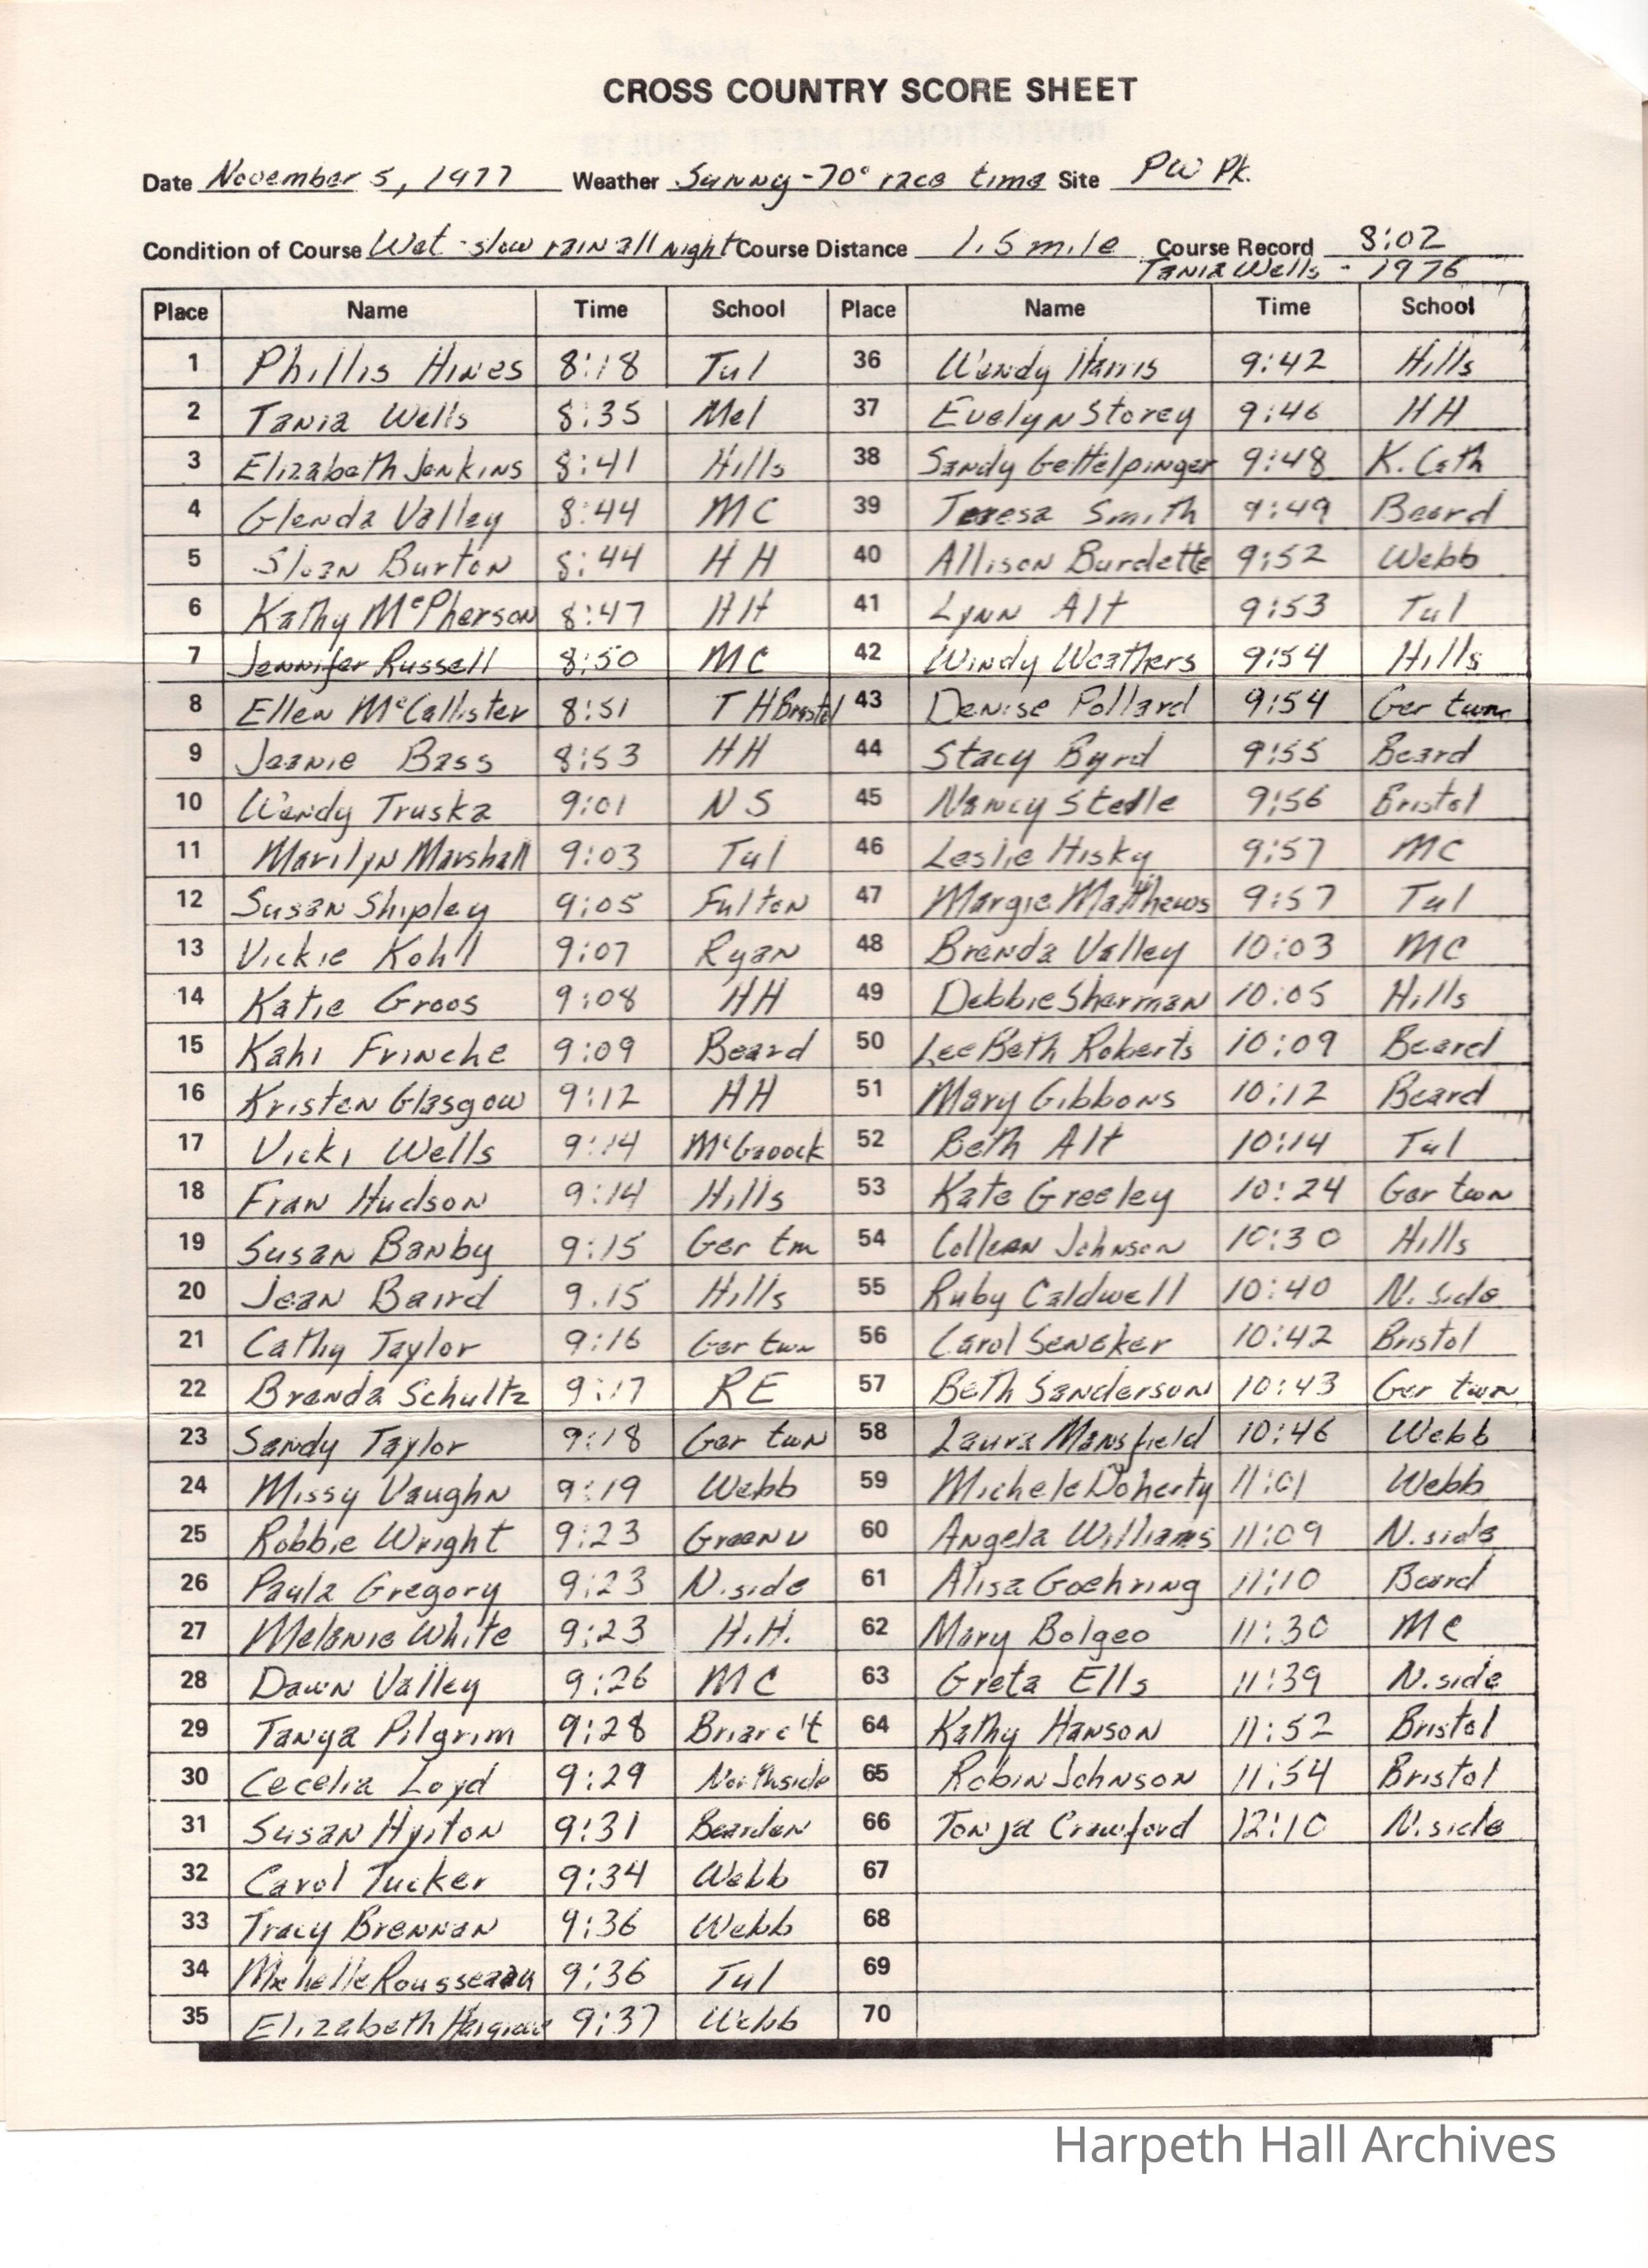 CROSS COUNTRY SCORE SHEET
Date November 5, 1977 Weather Sunny-70° race time Site PW Pk.
Condition of Course Wet - slow rain all night Course Distance 1.5 mile Course Record 8:02
Tania Wells - 1976
Place Name Time School Place Name Time School
1 Phillis Hines 8:18 Tul 36 Wendy Harris 9:42 Hills
2 Tania Wells 8:35 Mel 37 Evelyn Storey 9:46 HH
3 Elizabeth Jenkins 8:41 Hills 38 Sandy Gettelpinger 9:48 K. Cath
4 Glenda Valley 8:44 MC 39 Teresa Smith 9:49 Beard
5 Sloan Burton 8:44 HH 40 Allison Burdette 9:52 Webb
6 Kathy McPherson 8:47 HH 41 Lynn Alt 9:53 Tul
7 Jennifer Russell 8:50 MC 42 Windy Weathers 9:54 Hills
8 Ellen McCallister 8:51 T H Bristol 43 Denise Pollard 9:54 Ger twn
9 Jeanie Bass 8:53 HH 44 Stacy Byrd 9:55 Beard
10 Wendy Truska 9:01 NS 45 Nancy Stedle 9:56 Bristol
11 Marilyn Marshall 9:03 Tul 46 Leslie Hisky 9:57 MC
12 Susan Shipley 9:05 Fulton 47 Margie Matthews 9:57 Tul
13 Vickie Kohll 9:07 Ryan 48 Brenda Valley 10:03 MC
14 Katie Groos 9:08 HH 49 Debbie Sherman 10:05 Hills
15 Kahi Frinche 9:09 Beard 50 Lee Beth Roberts 10:09 Beard
16 Kristen Glasgow 9:12 HH 51 Mary Gibbons 10:12 Beard
17 Vicki Wells 9:14 McGavock 52 Beth Alt 10:14 Tul
18 Fran Hudson 9:14 Hills 53 Kate Greeley 10:24 Ger twn
19 Susan Banby 9:15 Ger tm 54 Colleen Johnson 10:30 Hills
20 Jean Baird 9.15 Hills 55 Ruby Caldwell 10:40 N. side
21 Cathy Taylor 9:16 Ger twn 56 Carol Seneker 10:42 Bristol
22 Brenda Schultz 9:17 RE 57 Beth Sanderson 10:43 Ger twn
23 Sandy Taylor 9:18 Ger twn 58 Laura Mansfield 10:46 Webb
24 Missy Vaughn 9:19 Webb 59 Michele Doherty 11:01 Webb
25 Robbie Wright 9:23 Green v 60 Angela Williams 11:09 N. side
26 Paula Gregory 9:23 N. side 61 Alisa Goehring 11:10 Beard
27 Melanie White 9:23 H.H. 62 Mary Bolgeo 11:30 MC
28 Dawn Valley 9:26 MC 63 Greta Ells 11:39 N. side
29 Tanya Pilgrim 9:28 Briarc't 64 Kathy Hanson 11:52 Bristol
30 Cecelia Loyd 9:29 Northside 65 Robin Johnson 11:54 Bristol
31 Susan Hyiton 9:31 Bearden 66 Tonja Crawford 12:10 N. side
32 Carol Tucker 9:34 Webb 67
33 Tracy Brennan 9:36 Webb 68
34 Michelle Rousseau 9:36 Tul 69
35 Elizabeth 9:37 Webb 70
Harpeth Hall Archives